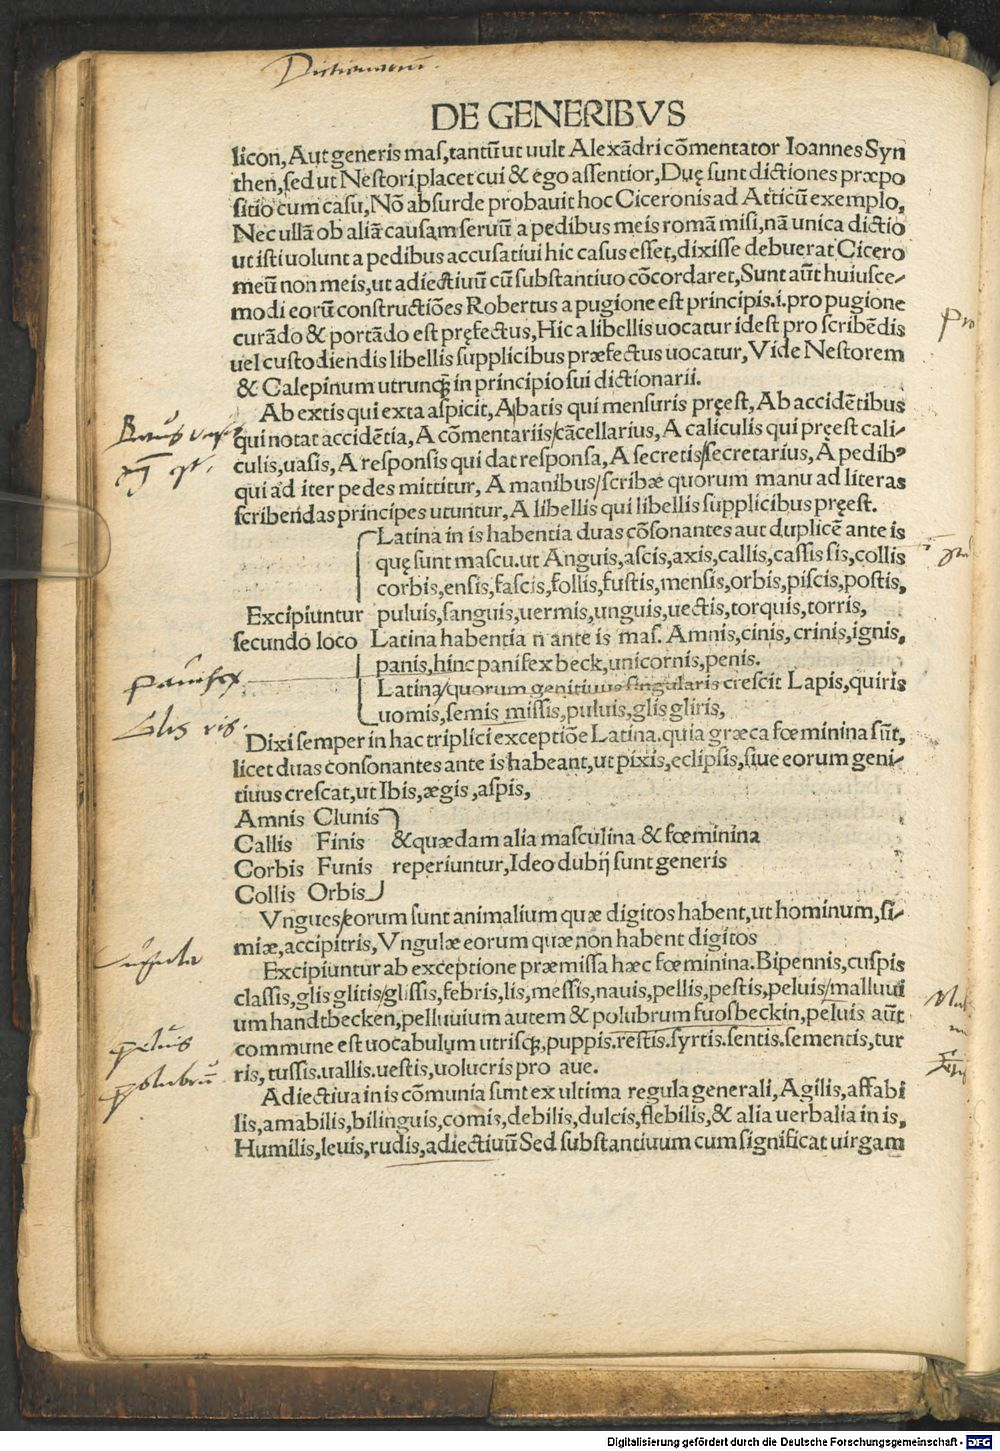 DE GENERIBVS
licon, Aut generis mas, tantũ ut uult Alexãdri cõmentator Ioannes Syn
then, sed ut Nestori placet cui & ego assentior, Duę sunt dictiones præpo
sitio cum casu, Nõ absurde probauit hoc Ciceronis ad Atticũ exemplo,
Nec ullã ob aliã causam seruũ a pedibus meis romã misi, nã unica dictio
ut isti uolunt a pedibus accusatiui hic casus esset, dixisse debuerat Cicero
meũ non meis, ut adiectiuũ cũ substantiuo cõcordaret, Sunt aũt huiusce-
modi eorũ constructiões Robertus a pugione est principis .i. pro pugione
curãdo & portãdo est pręfectus, Hic a libellis uocatur id est pro scribẽdis
uel custodiendis libellis supplicibus præfectus uocatur, Vide Nestorem
& Calepinum utrunqꝫ in principio sui dictionarii.
Ab extis qui exta aspicit, Abatis qui mensuris pręest, Ab accidẽtibus
qui notat accidẽtia, A cõmentariis/cãcellarius, A caliculis qui pręest cali-
culis, uasis, A responsis qui dat responsa, A secretis/secretarius, A pedibꝰ
qui ad iter pedes mittitur, A manibus/scribæ quorum manu ad literas
scribendas principes utuntur, A libellis qui libellis supplicibus pręest.
Latina in is habentia duas cõsonantes aut duplicẽ ante is
quę sunt mascu. ut Anguis, ascis, axis, callis, cassis sis, collis
corbis, ensis, fascis, follis, fustis, mensis, orbis, piscis, postis,
Excipiuntur puluis, sanguis, uermis, unguis, uectis, torquis, torris,
secundo loco Latina habentia n ante is mas. Amnis, cinis, crinis, ignis,
panis, hinc panifex beck, unicornis, penis.
panifex
Latina/quorum genitiuus singularis crescit Lapis, quiris
uomis, semis missis, puluis, glis gliris,
Glis ris.
Dixi semper in hac triplici exceptiõe Latina. quia græca fœminina sũt,
licet duas consonantes ante is habeant, ut pixis, eclipsis, siue eorum geni-
tiuus crescat, ut Ibis, ægis, aspis,
Amnis Clunis
Callis Finis & quædam alia masculina & fœminina
Corbis Funis reperiuntur, Ideo dubij sunt generis
Collis Orbis
Vngues/eorum sunt animalium quæ digitos habent, ut hominum, si-
miæ, accipitris, Vngulæ eorum quæ non habent digitos
ungula
Excipiuntur ab exceptione præmissa hæc fœminina. Bipennis, cuspis
classis, glis glitis/glissis, febris, lis, messis, nauis, pellis, pestis, peluis/malluui
um handtbecken, pelluuium autem & polubrum fuosbeckin, peluis aũt
commune est uocabulum utrisqꝫ, puppis. restis. syrtis. sentis. sementis, tur
peluis
ris, tussis. uallis. uestis, uolucris pro aue.
polubrũ
Adiectiua in is cõmunia sunt ex ultima regula generali, Agilis, affabi
lis, amabilis, bilinguis, comis, debilis, dulcis, flebilis, & alia uerbalia in is,
Humilis, leuis, rudis, adiectiuũ Sed substantiuum cum significat uirgam
Digitalisierung gefördert durch die Deutsche Forschungsgemeinschaft - DFG